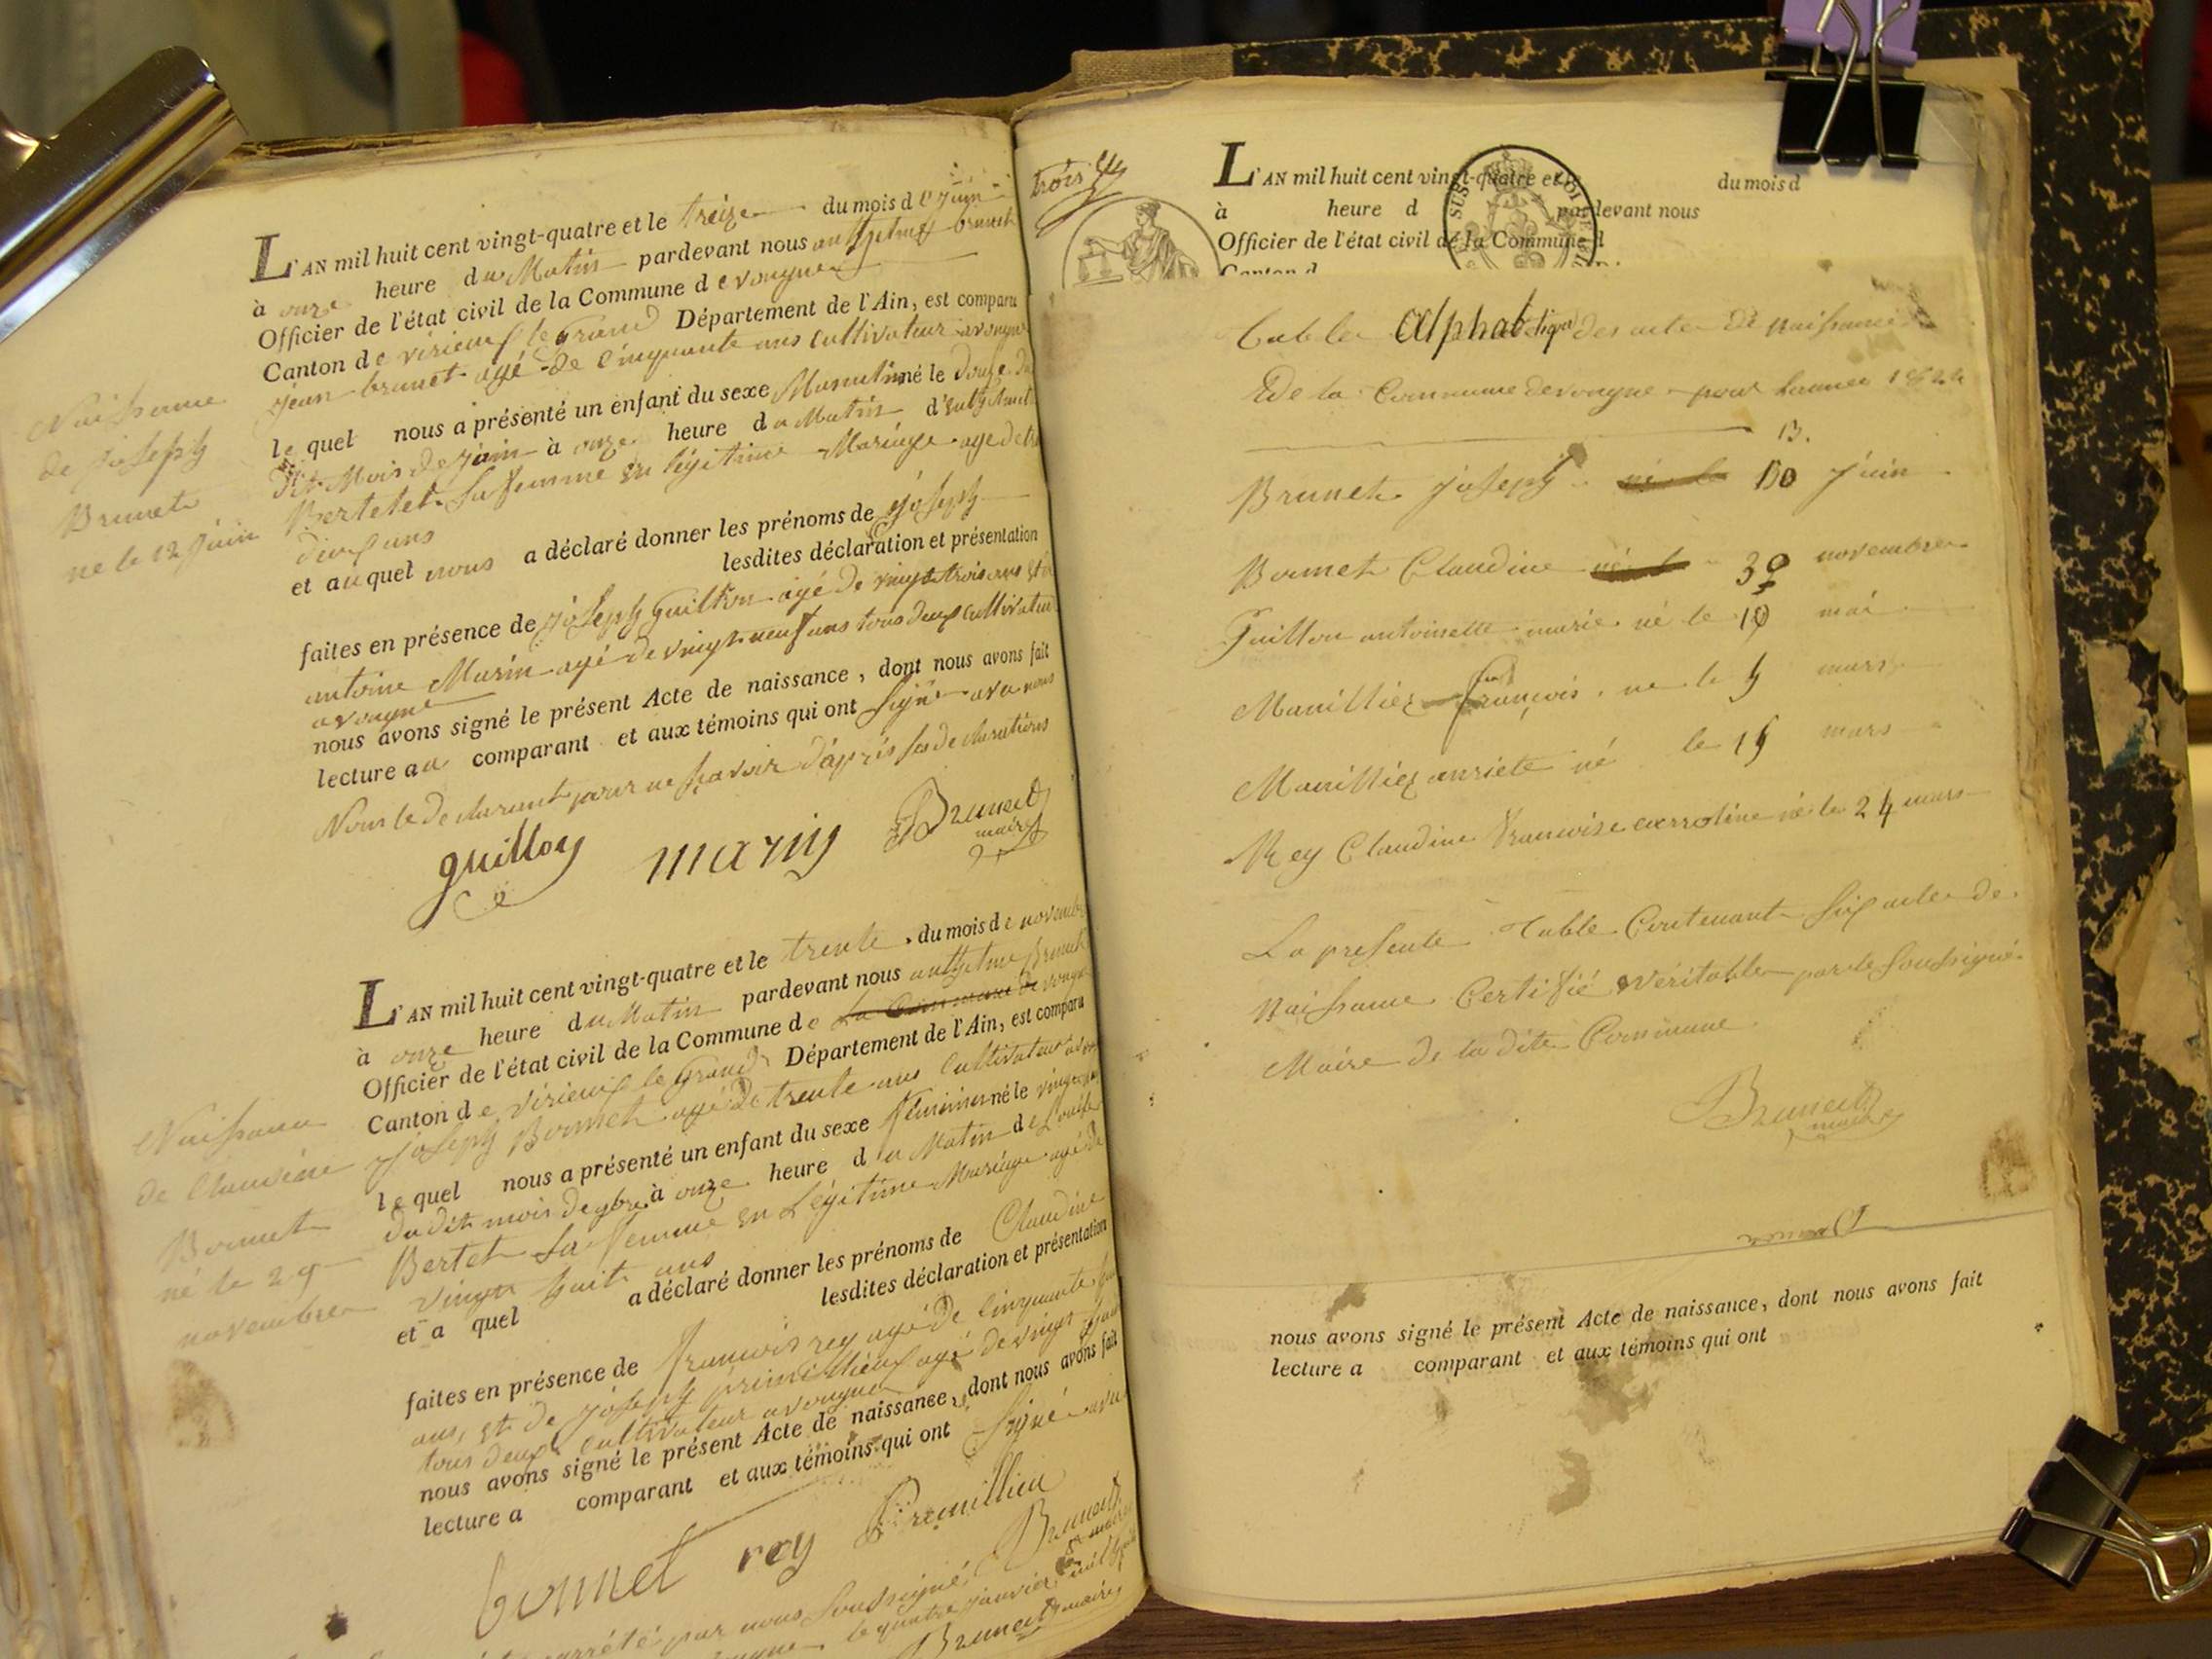 L'AN mil huit cent vingt-quatre et le treize du mois de Juin
à onze heure du Matin pardevant nous anthelme brunet
Officier de l'état civil de la Commune de vongne
Canton de virieux le Grand Département de l'Ain, est comparu
jean brunet agé de cinquante ans cultivateur a vongne
le quel nous a présenté un enfant du sexe Masculin né le douze du
dit Mois de juin à onze heure du Matin
Bertelet sa femme en légitime Mariage agé de
et au quel nous a déclaré donner les prénoms de joseph
lesdites déclaration et présentation
faites en présence de joseph Guillon agé de vingt trois ans et
antoine Marin agé de vingt neuf ans tous deux cultivateur
a vongne
nous avons signé le présent Acte de naissance, dont nous avons fait
lecture au comparant et aux témoins qui ont signé avec nous
Non le declarant pour ne savoir d'après sa declarations
guillon marin Brunet
maire
Naissance
de joseph
Brunet
ne le 12 juin
L'AN mil huit cent vingt-quatre et le trente du mois de novembre
à onze heure du Matin pardevant nous anthelme Brunet
Officier de l'état civil de la Commune de la Commune de vongne
Canton de virieux le Grand Département de l'Ain, est comparu
joseph Bonnet agé de trente ans cultivateur
le quel nous a présenté un enfant du sexe feminin né le vingt
du dit mois de 9bre à onze heure du Matin de Louise
Bertet sa femme en Légitime Mariage agé de
vingt huit ans
et a quel a déclaré donner les prénoms de Claudine
lesdites déclaration et présentation
faites en présence de francois rey agé de cinquante
ans, et de joseph premillieux agé de vingt
tous deux cultivateur a vongne
nous avons signé le présent Acte de naissance, dont nous avons fait
lecture a comparant et aux témoins qui ont signé avec
bonnet rey Premillieu Brunet
maire
Naissance
de Claudine
Bonnet
né le 29
novembre
arrété par nous soussigné
le quatre janvier mil
Brunet maire
trois
L'AN mil huit cent vingt-quatre et le du mois d
à heure d pardevant nous
Officier de l'état civil de la Commune d
Canton d
table Alphabétique des acte de naissance
De la Commune de vongne pour l'année 1824
13.
Brunet joseph né le 10 juin
Bonnet Claudine né le 30 novembre
Guillon antoinette marie né le 10 mai
Marilliez françois ne le 9 mars
Marilliez anriete né le 19 mars
Rey Claudine francoise carroline né le 24 mars
La presente Table Contenant six acte de
Naissance Certifié véritable par le soussigné
Maire de la dite Commune
Brunet
maire
nous avons signé le présent Acte de naissance, dont nous avons fait
lecture a comparant et aux témoins qui ont